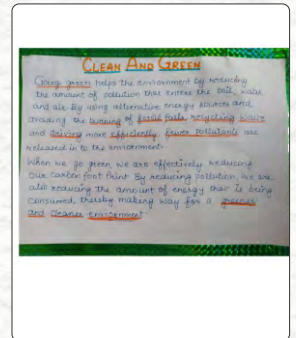 CLEAN AND GREEN
Going green helps the environment by reducing
the amount of pollution that enters the soil, water
and air. By using alternative energy sources and
avoiding the burning of fossil fuels, recycling waste
and driving more efficiently, fewer pollutants are
released in to the environment.
When we go green we are effectively reducing
our carbon foot print. By reducing pollution, we are
also reducing the amount of energy that is being
consumed, thereby making way for a greener
and cleaner environment.